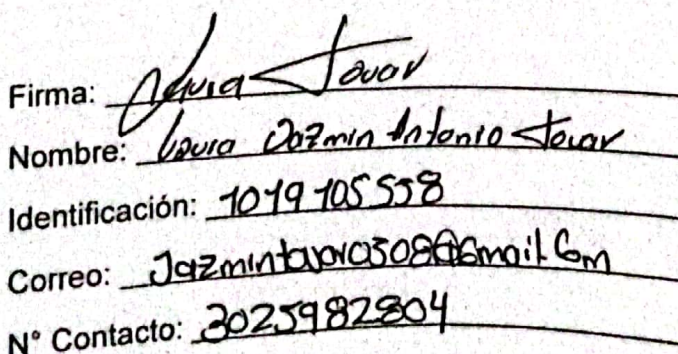 Firma: Laura Tovar
Nombre: Laura Jazmin Antonio Tovar
Identificación: 1019105558
Correo: Jazmintovar0508@Gmail.Com
N° Contacto: 3025982804